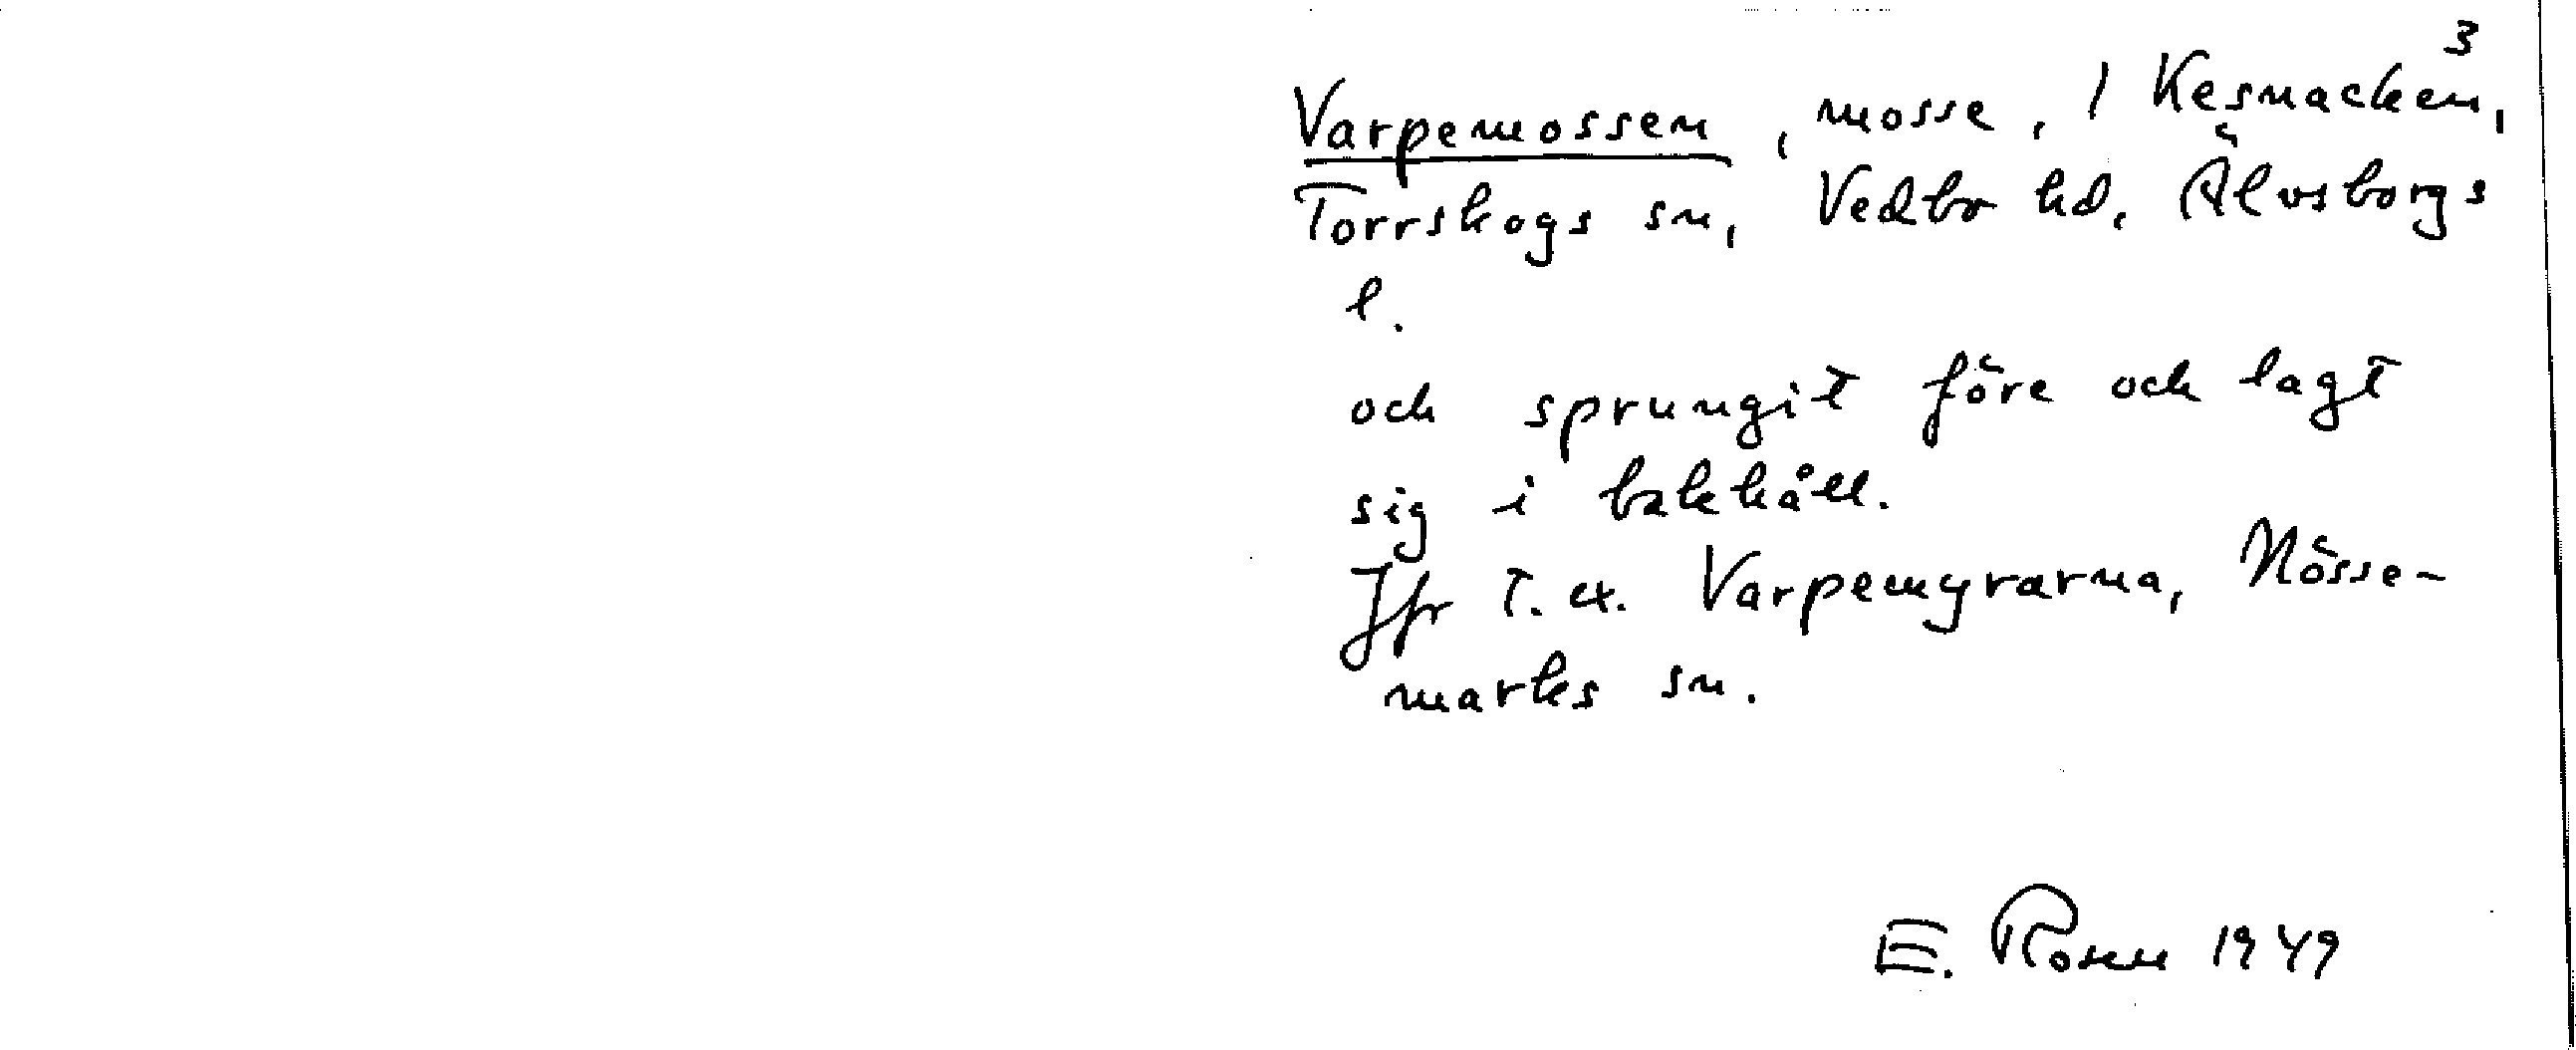 3
Varpemossen, mosse, 1 Kesnacken,
Torrskogs sn, Vedbo hd, Älvsborgs
l.
och sprungit före och lagt
sig i bakhåll.
Jfr t. ex. Varpemyrarna, Nösse-
marks sn.
E. Rosen 1949